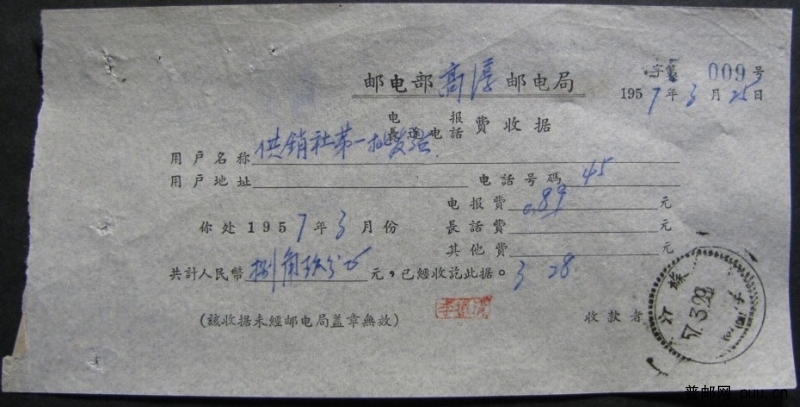 字第 009 号
邮电部高淳邮电局
1957年3月25日
电报
長途电話 費收据
用户名称 供销社第一批发站
用户地址 电話号碼 45
电报費 0.89 元
你处1957年3月份 長話費 元
其他費 元
共計人民幣 捌角玖分 元,已經收訖此据。 3 28
(該收据未經邮电局盖章無效) 收款者
57.3.29
普邮网 puu.cn